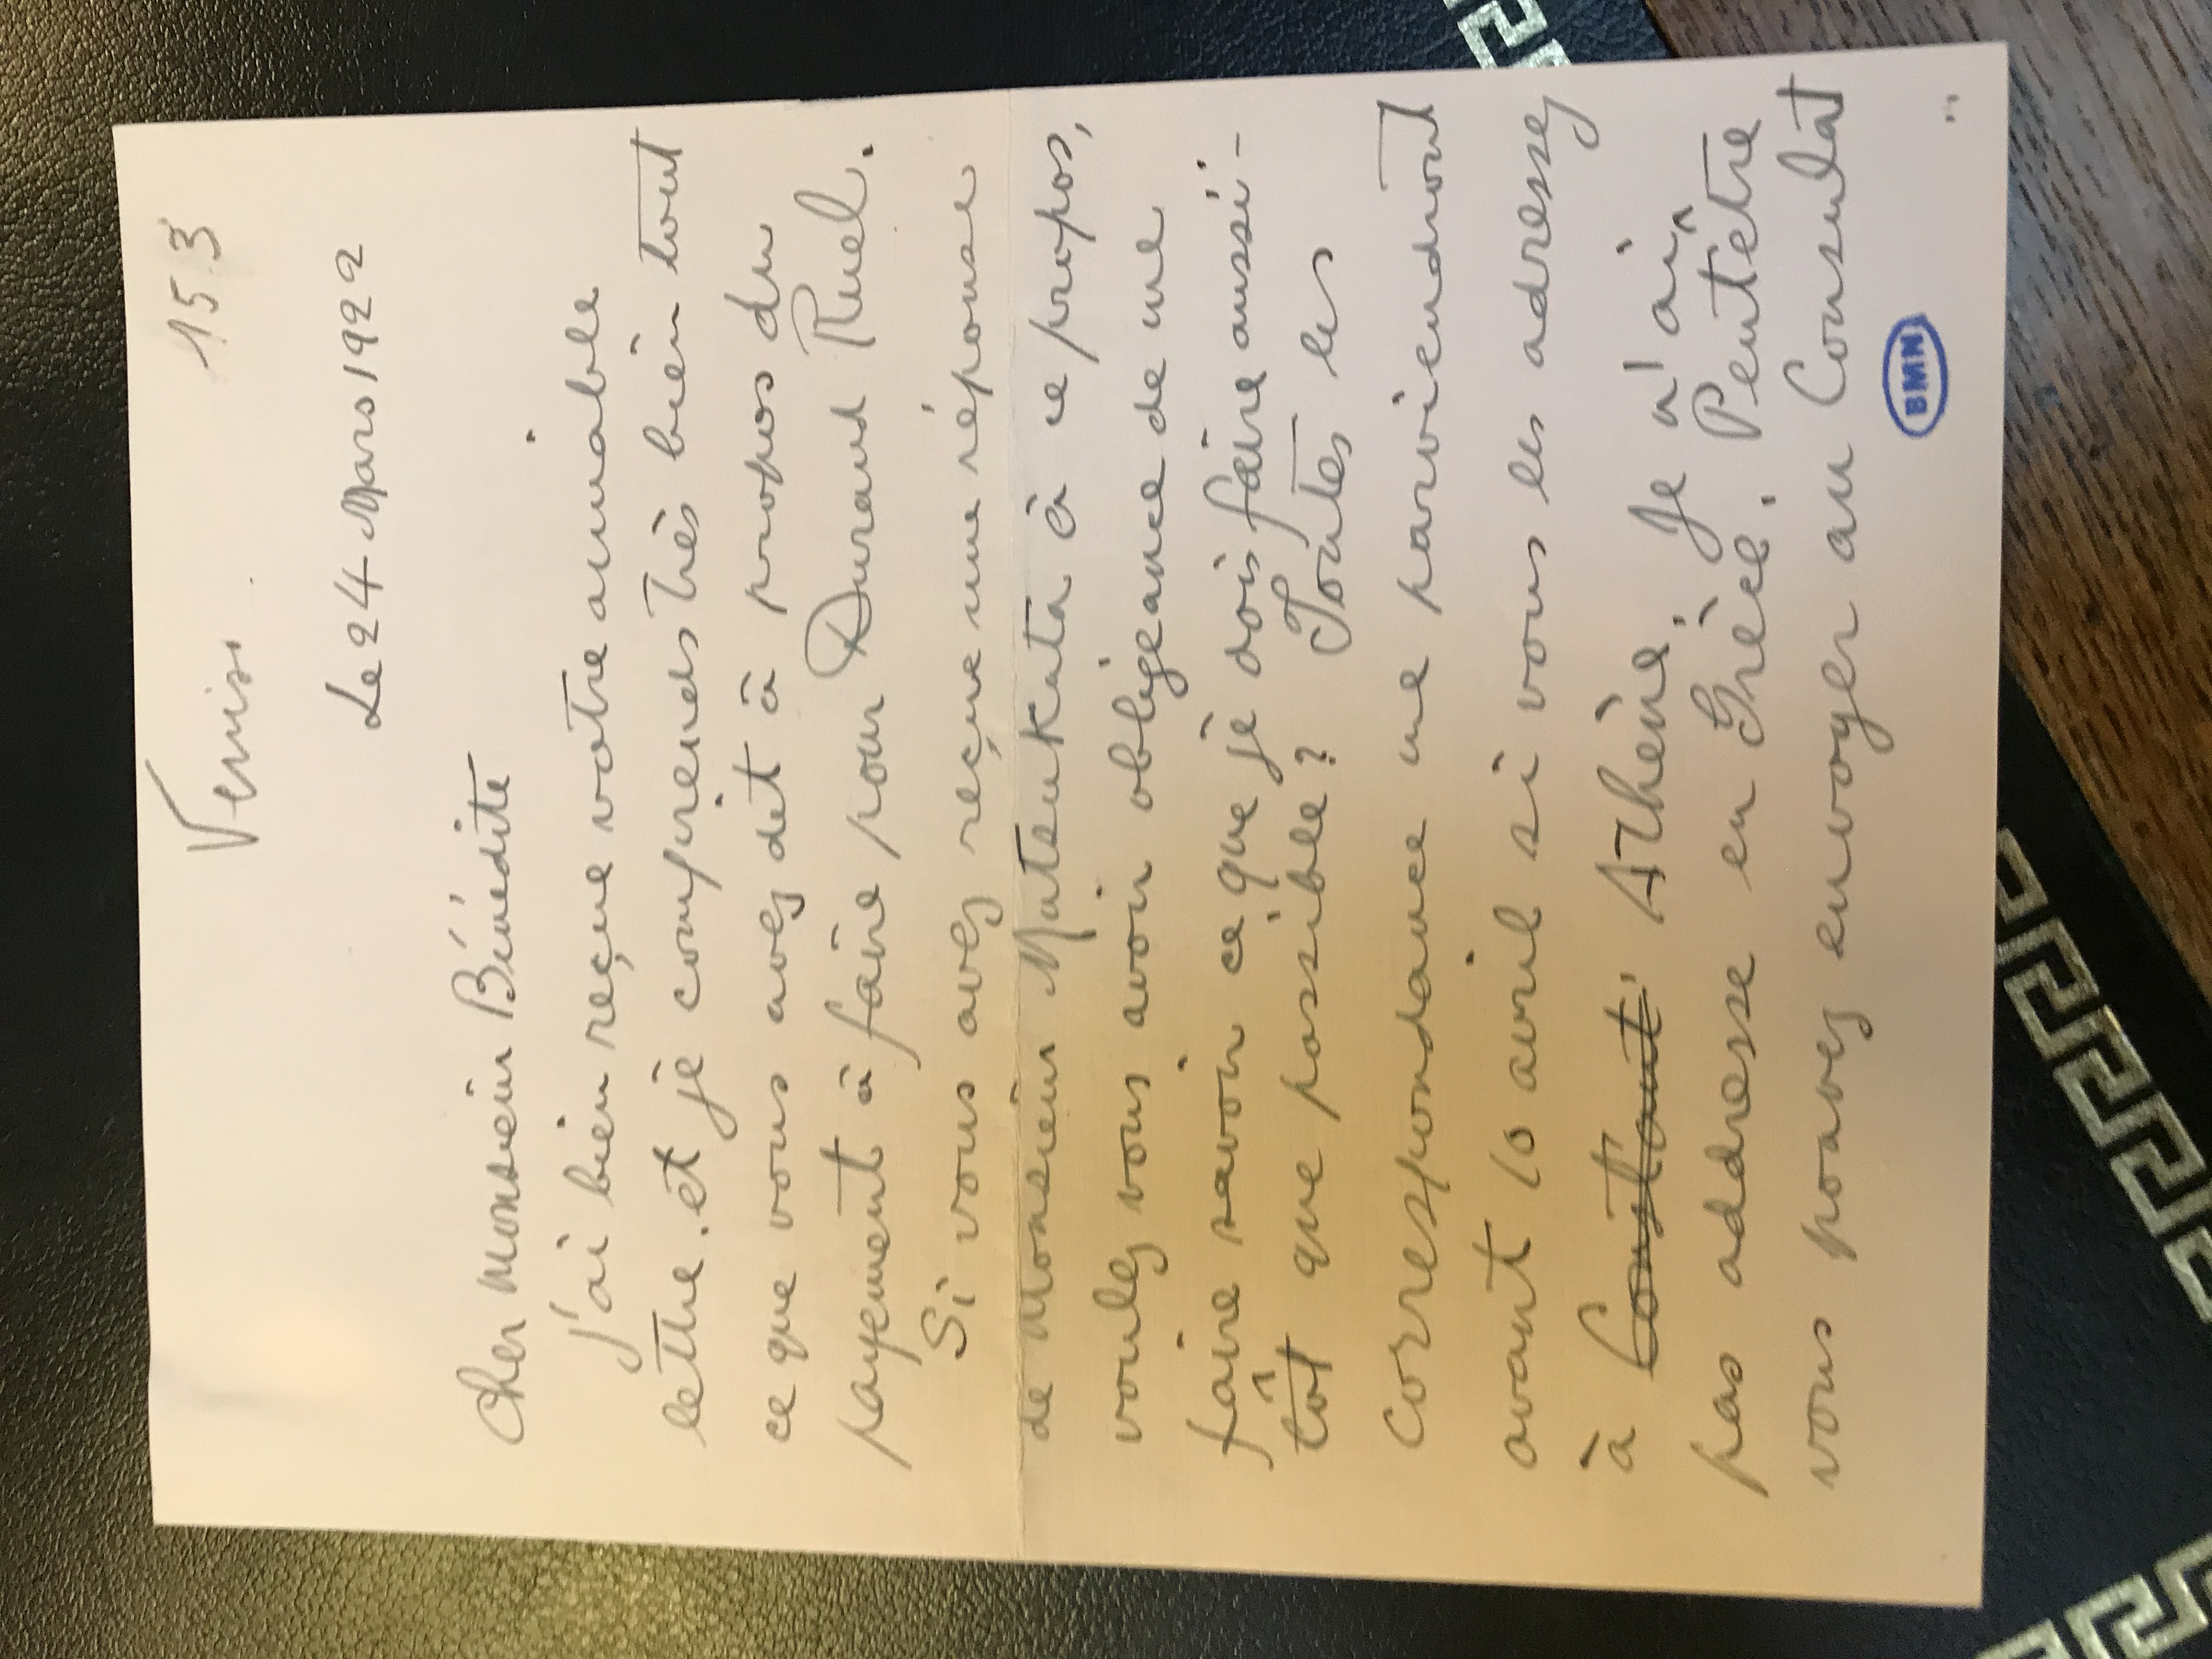 153
Venise
Le 24 Mars 1922
Cher Monsieur Bénédite
J'ai bien reçue votre aimable
lettre. et je comprends très bien tout
ce que vous avez dit à propos du
payement à faire pour Durand Ruel.
Si vous avez reçue une réponse
de Monsieur Matsukata à ce propos,
voulez vous avoir obligeance de me
faire savoir ce que je dois faire aussi-
tôt que possible? Toutes les
correspondance me parviendront
avant 10 avril si vous les adressez
à Athène. Je n'ai
pas addresse en Grèce. Peutêtre
vous pouvez envoyer au Consulat
BMN